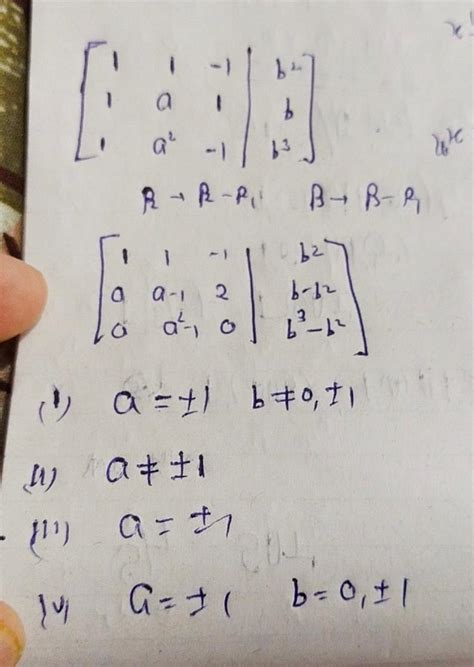 1 1 -1 | b²
1 a 1 | b
1 a² -1 | b³
R → R - R₁ R → R - R₁
1 1 -1 | b²
0 a-1 2 | b-b²
0 a²-1 0 | b³-b²
(i) a = ±1 b ≠ 0, ±1
(ii) a ≠ ±1
(iii) a = ±1
iv) a = ±1 b = 0, ±1